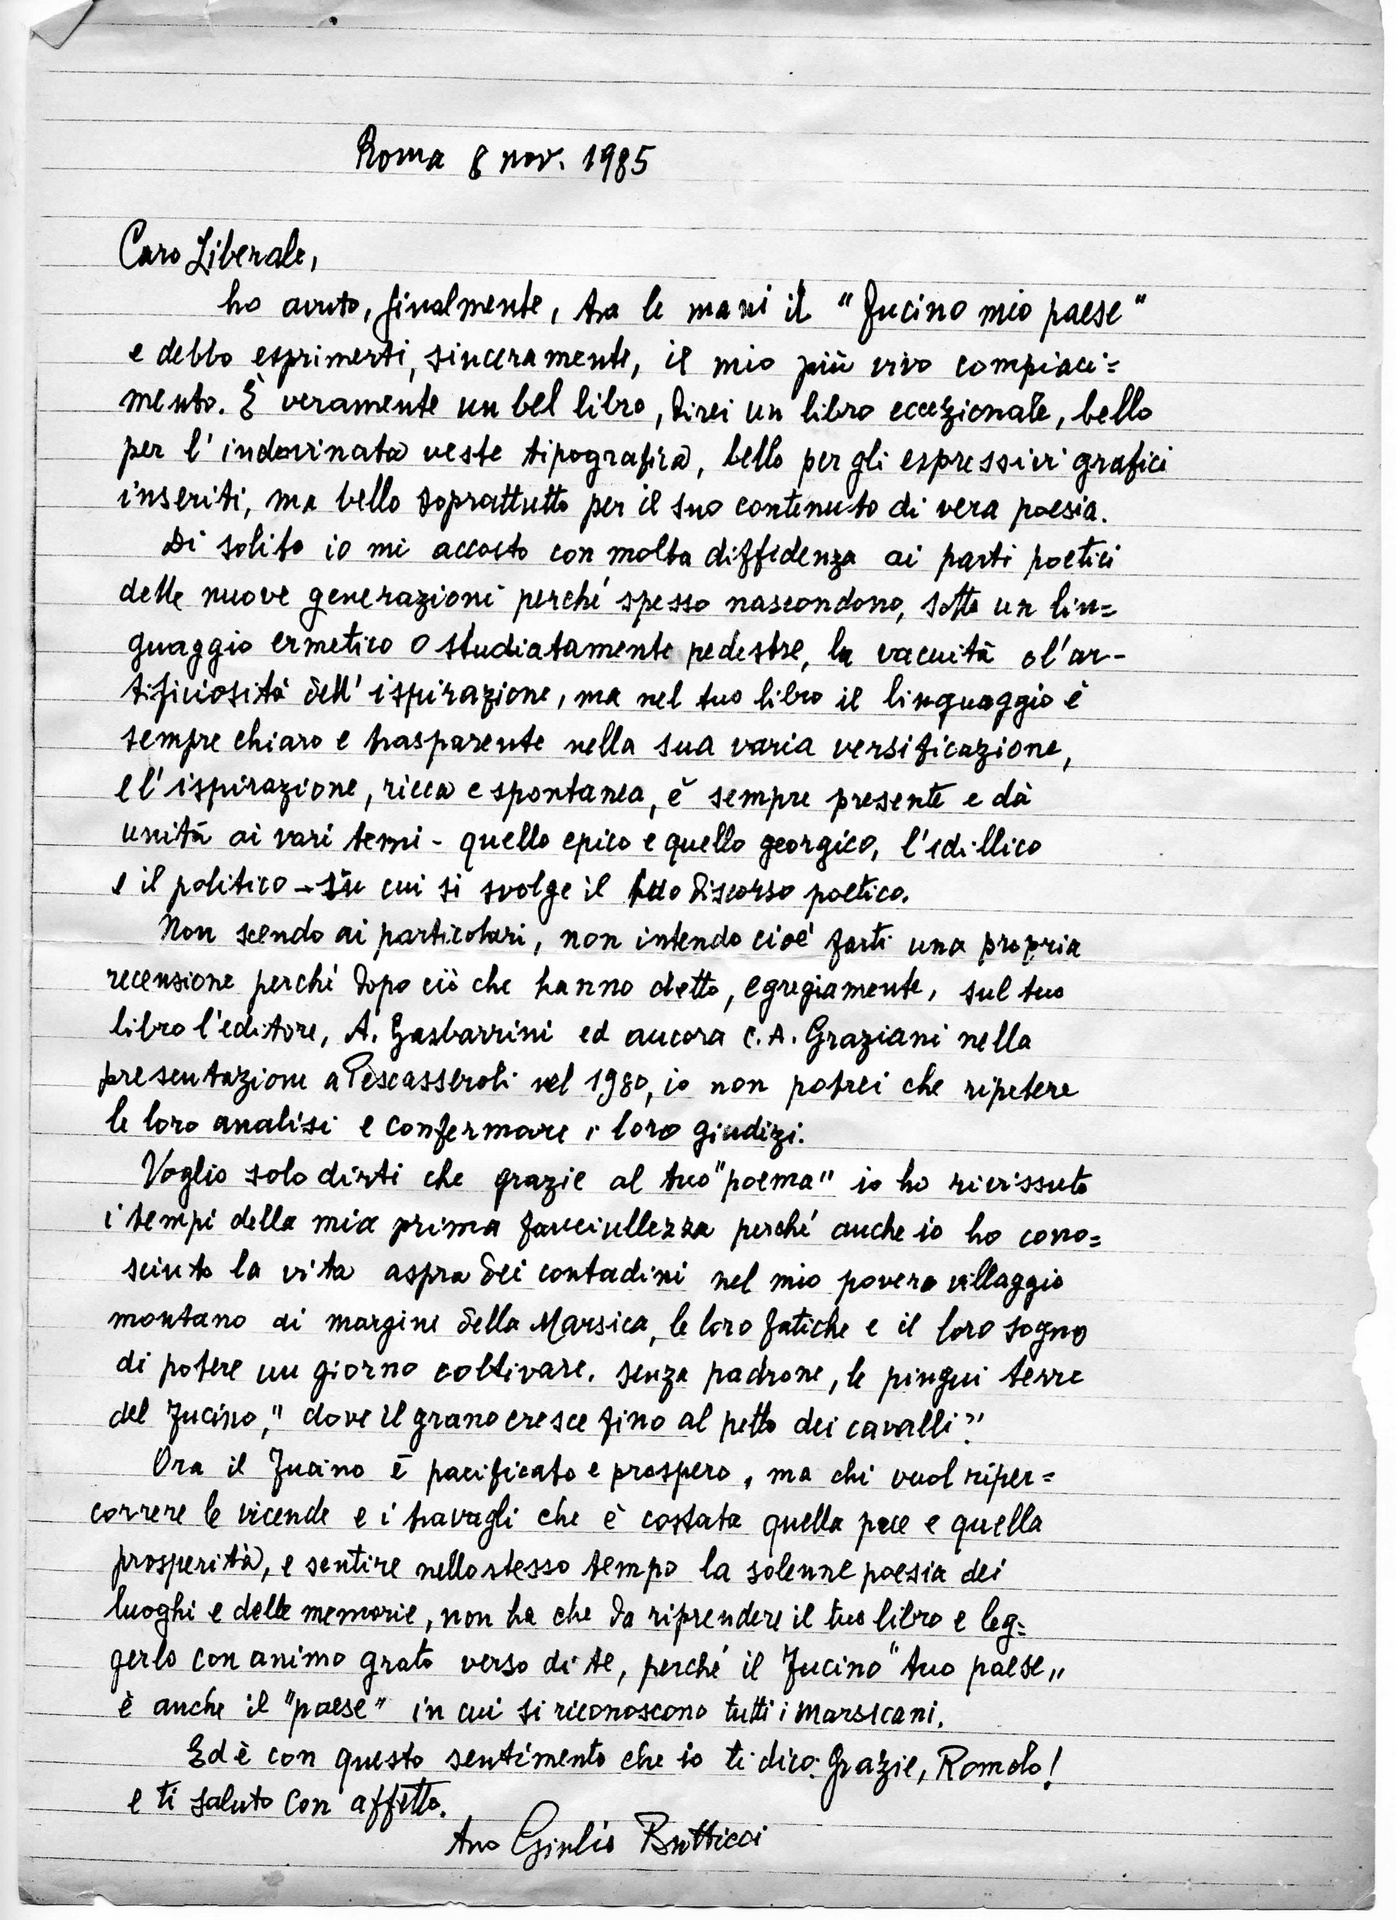 Roma 8 nov. 1985
Caro Liberale,
ho avuto, finalmente, tra le mani il "Fucino mio paese"
e debbo esprimerti, sinceramente, il mio più vivo compiaci=
mento. È veramente un bel libro, direi un libro eccezionale, bello
per l'indovinata veste tipografica, bello per gli espressivi grafici
inseriti, ma bello soprattutto per il suo contenuto di vera poesia.
Di solito io mi accosto con molta diffidenza ai parti poetici
delle nuove generazioni perché spesso nascondono, sotto un lin=
guaggio ermetico o studiatamente pedestre, la vacuità o l'ar-
tificiosità dell'ispirazione, ma nel tuo libro il linguaggio è
sempre chiaro e trasparente nella sua varia versificazione,
e l'ispirazione, ricca e spontanea, è sempre presente e dà
unità ai vari temi - quello epico e quello georgico, l'idillico
e il politico - in cui si svolge il tuo discorso poetico.
Non scendo ai particolari, non intendo cioè farti una propria
recensione perché dopo ciò che hanno detto, egregiamente, sul tuo
libro l'editore, A. Gasbarrini ed ancora C.A. Graziani nella
presentazione a Pescasseroli nel 1980, io non potrei che ripetere
le loro analisi e confermare i loro giudizi.
Voglio solo dirti che grazie al tuo "poema" io ho rivissuto
i tempi della mia prima fanciullezza perché anche io ho cono=
sciuto la vita aspra dei contadini nel mio povero villaggio
montano ai margini della Marsica, le loro fatiche e il loro sogno
di potere un giorno coltivare, senza padrone, le pingui terre
del Fucino, "dove il grano cresce fino al petto dei cavalli".
Ora il Fucino è pacificato e prospero, ma chi vuol riper=
correre le vicende e i travagli che è costata quella pace e quella
prosperità, e sentire nello stesso tempo la solenne poesia dei
luoghi e delle memorie, non ha che da riprendere il tuo libro e leg=
gerlo con animo grato verso di te, perché il Fucino "tuo paese"
è anche il "paese" in cui si riconoscono tutti i Marsicani.
Ed è con questo sentimento che io ti dico: Grazie, Romolo!
e ti saluto con affetto.
tuo Giulio Butticci